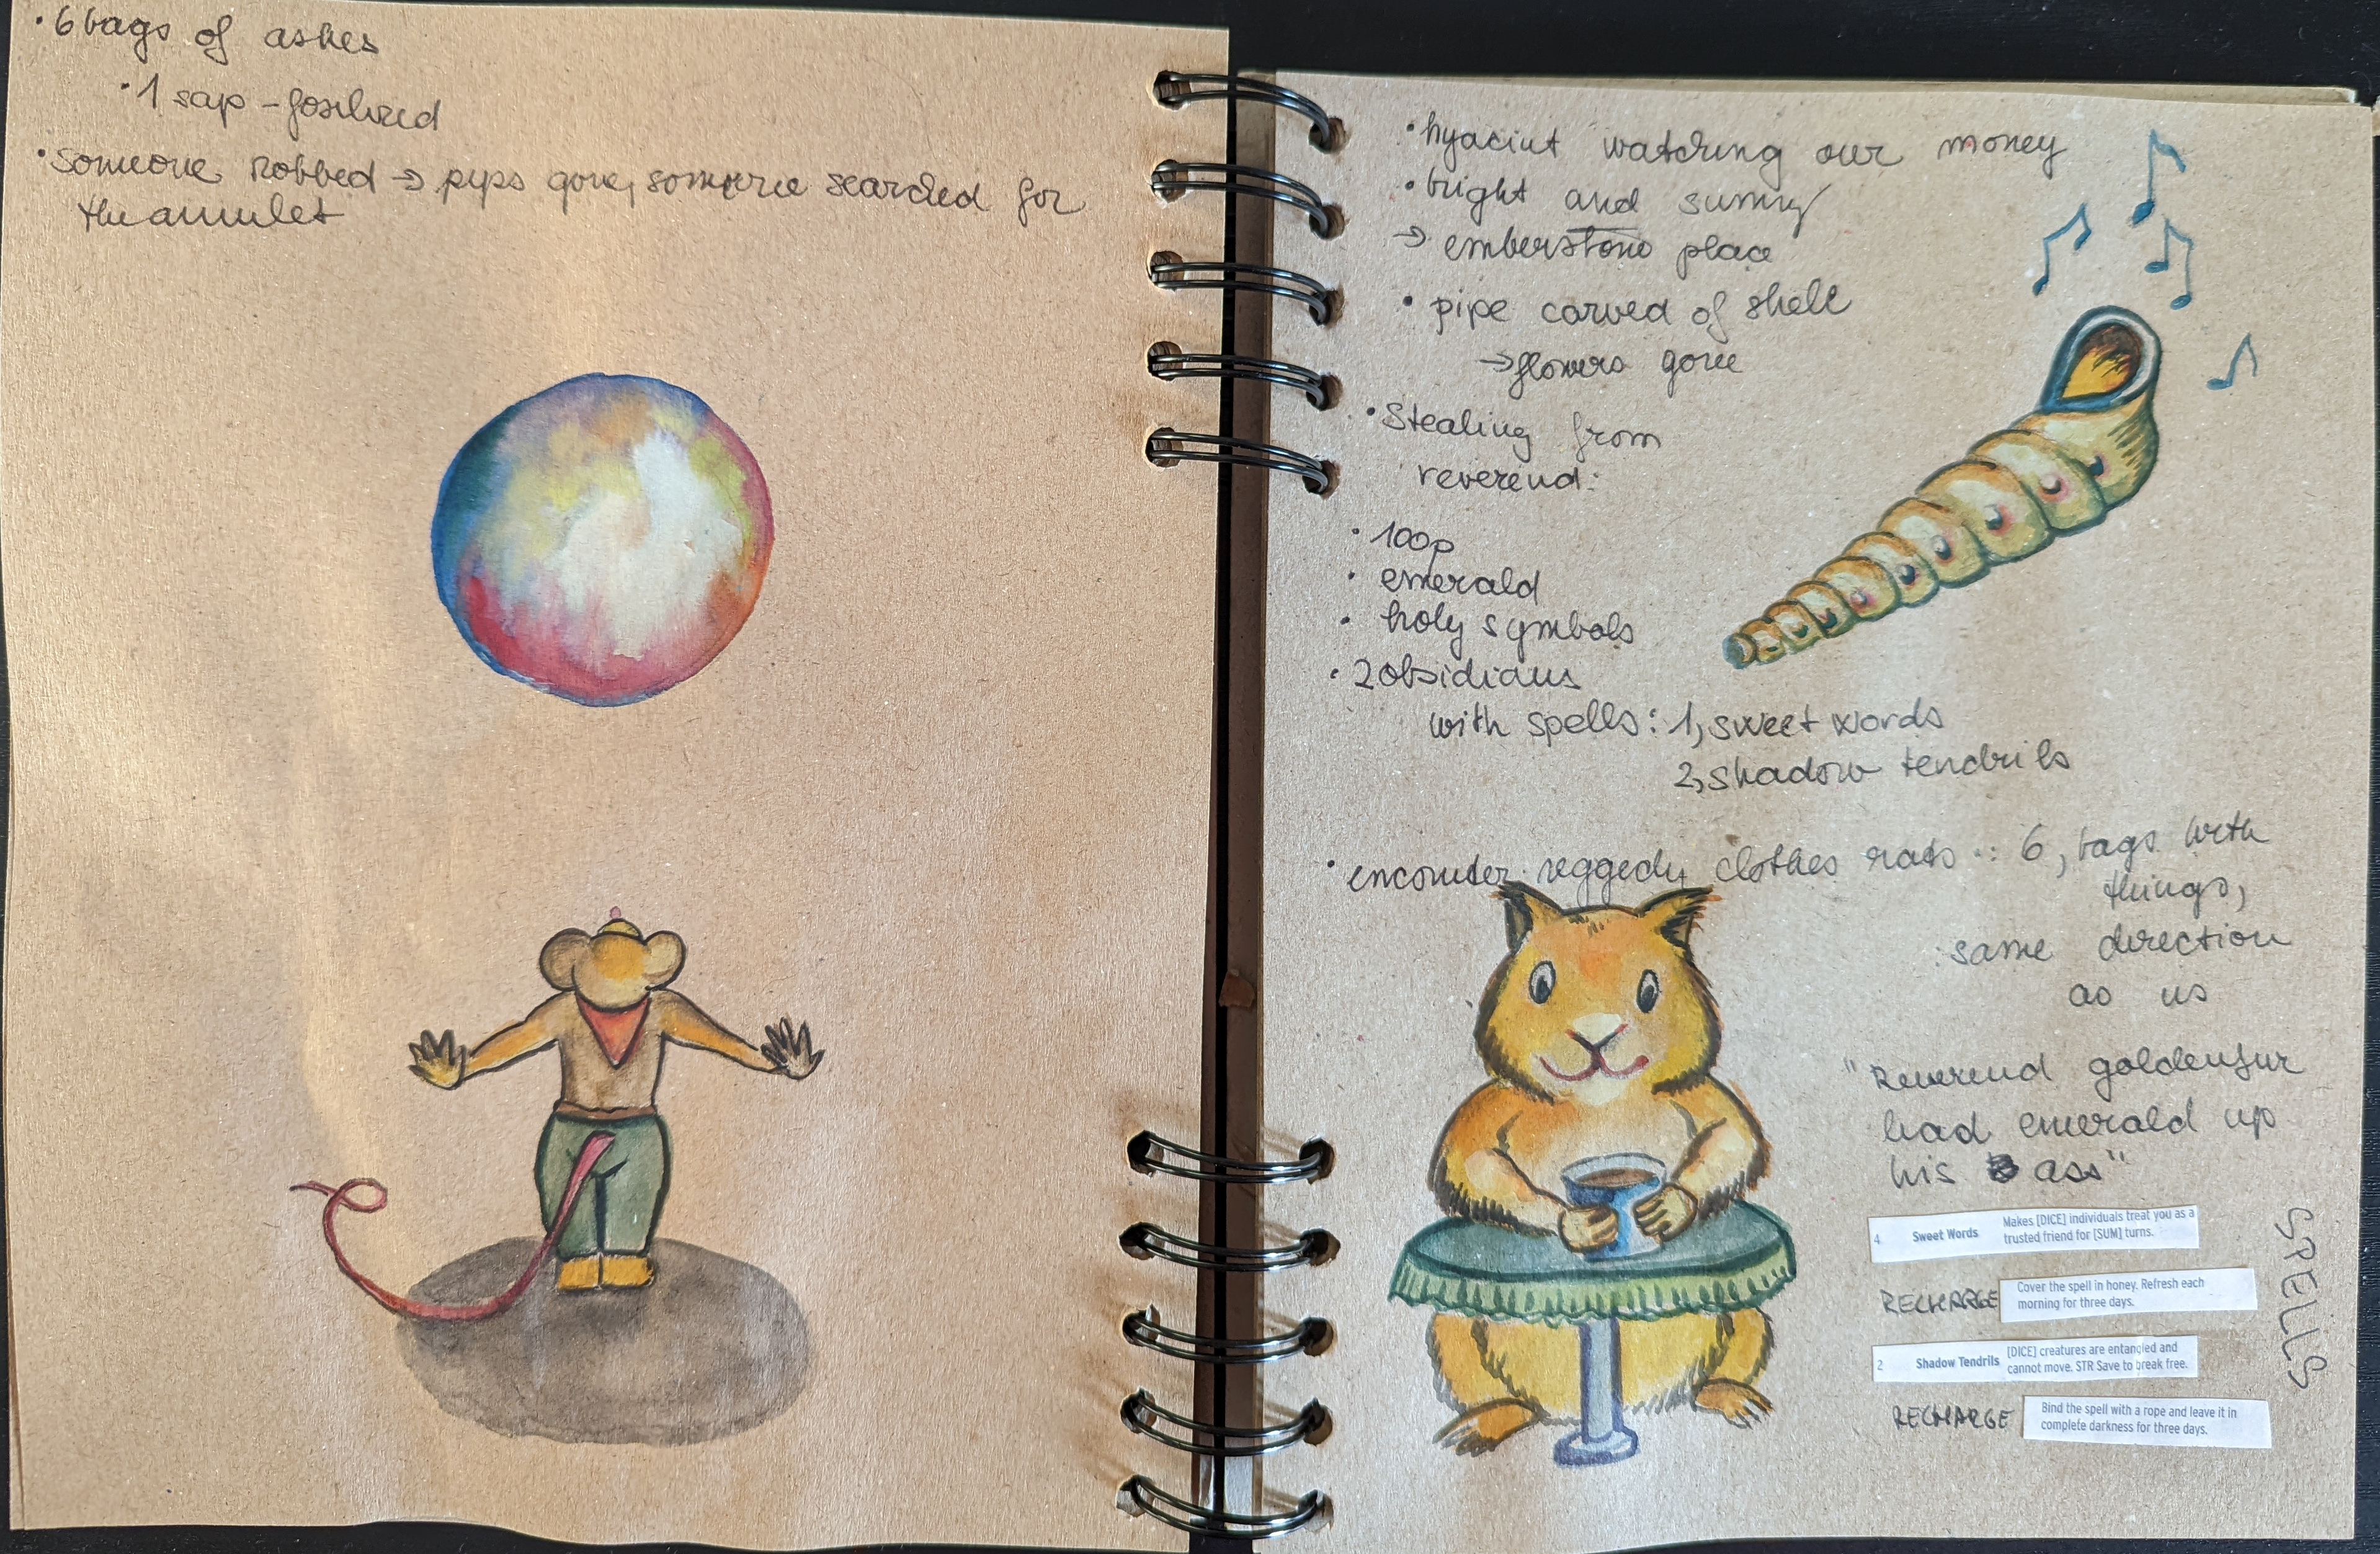 · 6 bags of ashes
· 1 sap - fosilized
· someone robbed → pips gone, someone searched for
the amulet
· hyacint watching our money
· bright and sunny
→ emberstone place
· pipe carved of shell
→ flowers gone
· Stealing from
reverend:
· 100p
· emerald
· holy symbols
· 2 obsidians
with spells: 1, sweet words
2, shadow tendrils
· encounter reggedy clothes rats : 6, bags with
things,
same direction
as us
"Reverend goldenfur
had emerald up
his ass"
4 Sweet Words Makes [DICE] individuals treat you as a
trusted friend for [SUM] turns.
RECHARGE Cover the spell in honey. Refresh each
morning for three days.
2 Shadow Tendrils [DICE] creatures are entangled and
cannot move. STR Save to break free.
RECHARGE Bind the spell with a rope and leave it in
complete darkness for three days.
SPELLS